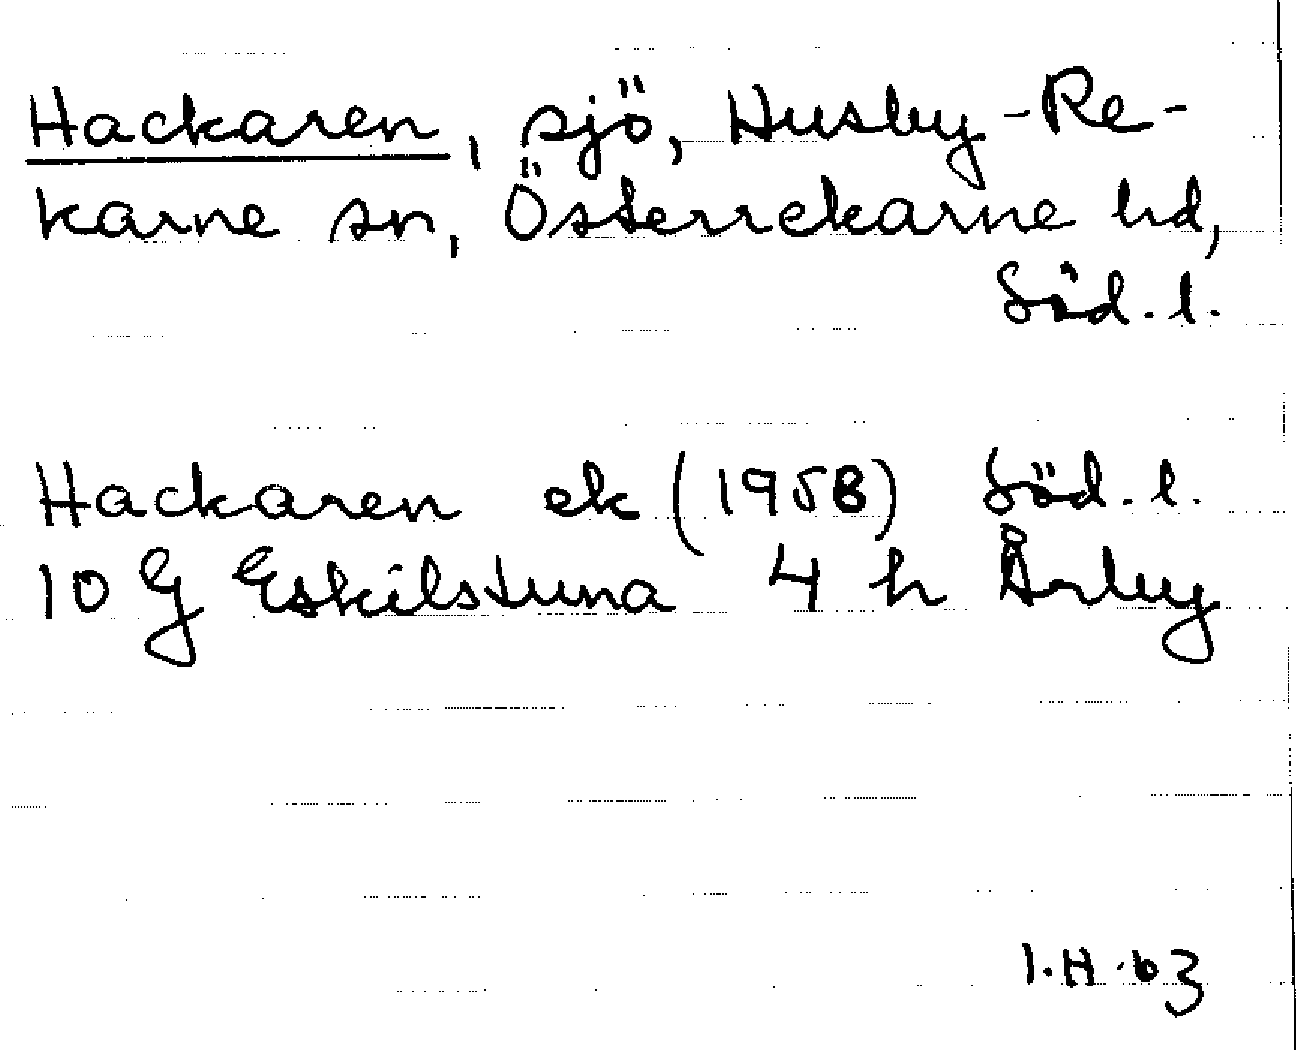 Hackaren, sjö, Husby-Re-
karne sn, Österrekarne hd,
Söd. l.
Hackaren ek (1958) Söd. l.
10 G Eskilstuna 4 h Årby
I.H.63